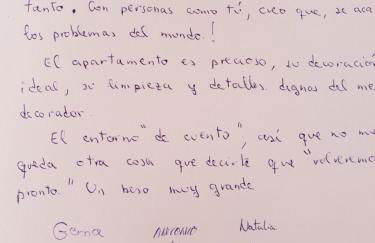 tanto. Con personas como tú, creo que, se aca
los problemas del mundo!
El apartamento es precioso, su decoración
ideal, su limpieza y detalles dignos del me
decorador.
El entorno "de cuento", así que no me
queda otra cosa que decirte que "volveremo
pronto." Un beso muy grande
Gema Antonio Natalia